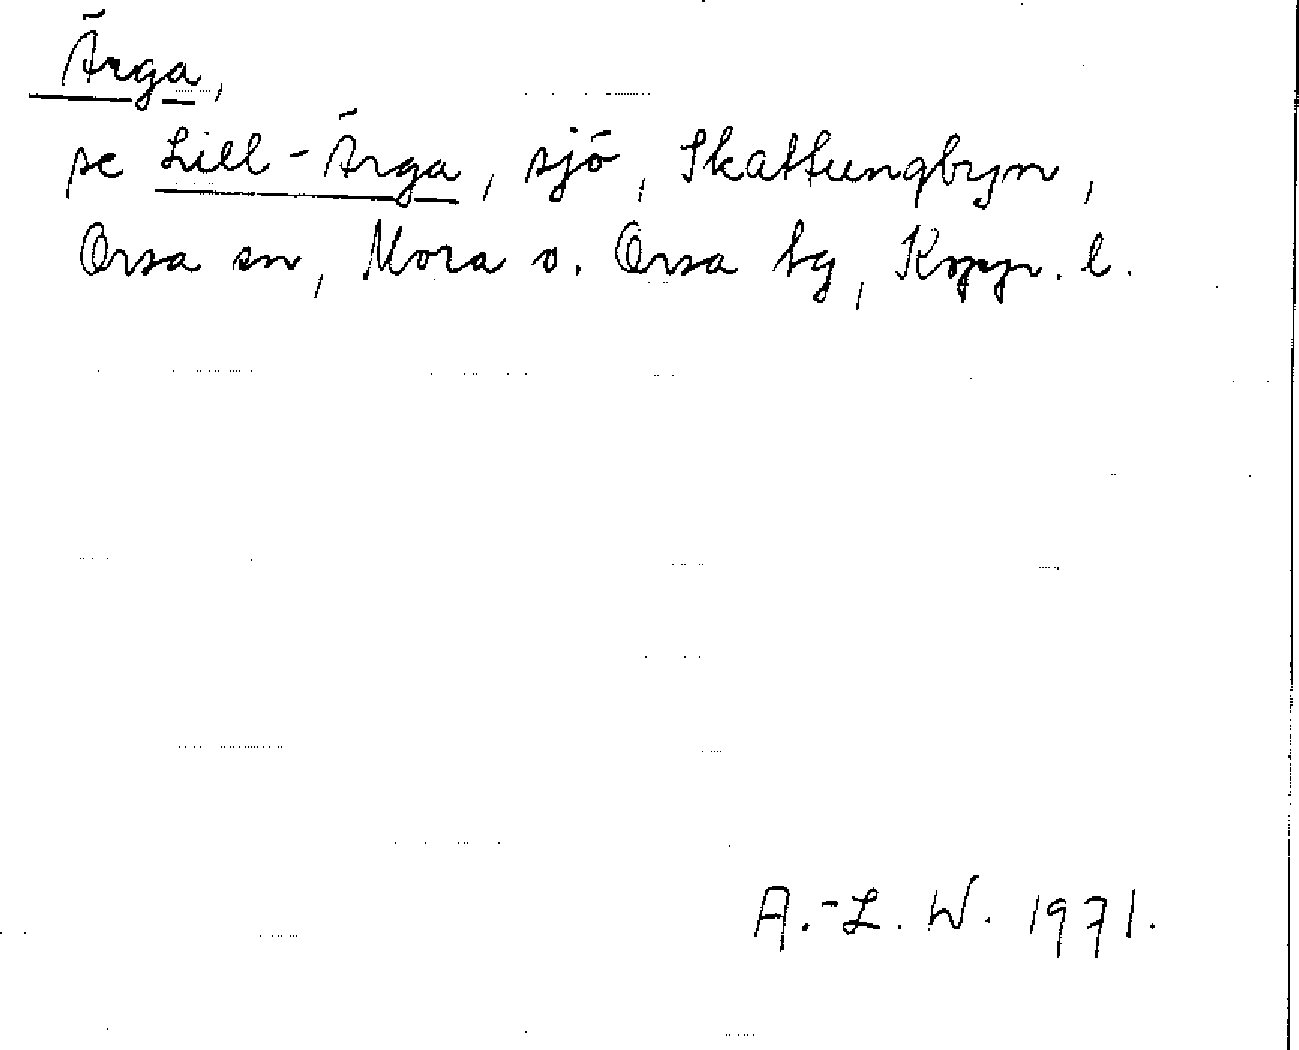 Ärga,
se Lill-Ärga, sjö, Skattungbyn,
Orsa sn, Mora o. Orsa tg, Kopp. l.
A.-L. W. 1971.